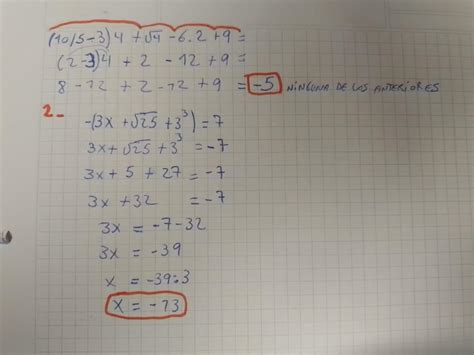 (10/5-3)4 + √4 - 6.2 + 9 =
(2-3)4 + 2 - 12 + 9 =
8 - 12 + 2 - 12 + 9 = -5 NINGUNA DE LAS ANTERIORES
2.-
-(3x + √25 + 3³) = 7
3x + √25 + 3³ = -7
3x + 5 + 27 = -7
3x + 32 = -7
3x = -7-32
3x = -39
x = -39:3
x = -13